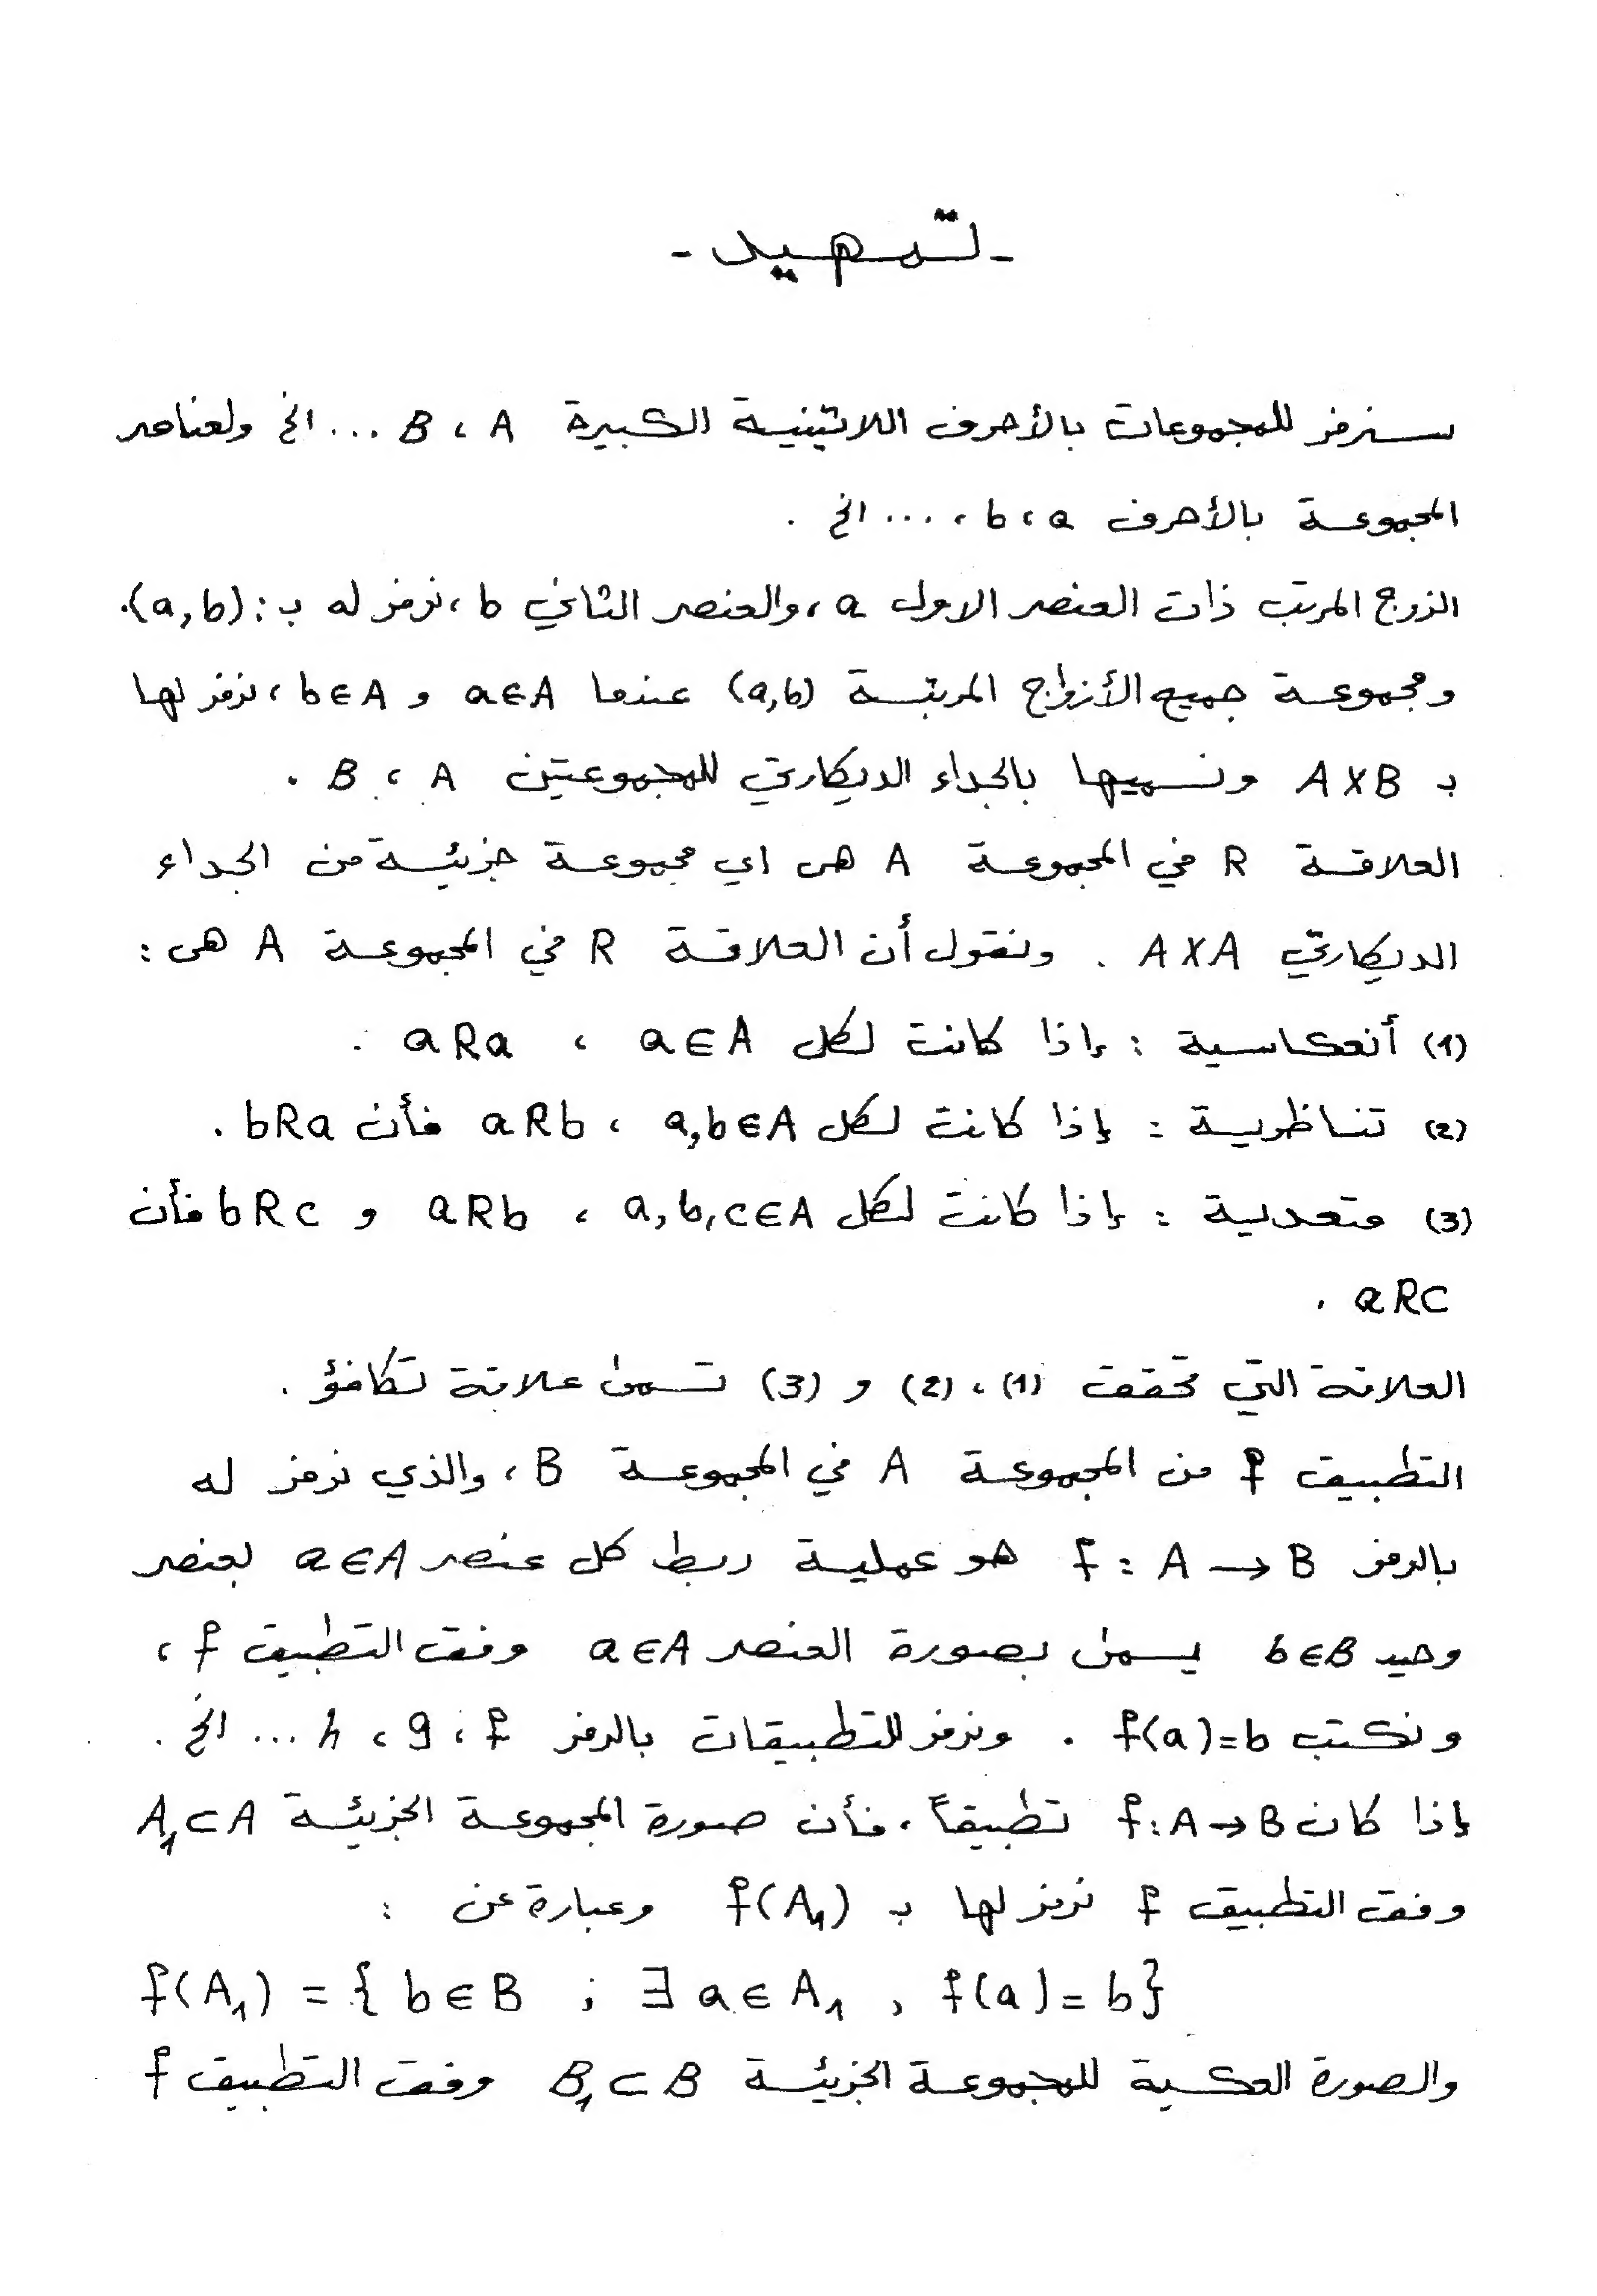 - تمهيد -
سنرمز للمجموعات بالأحرف اللاتينية الكبيرة A ، B ... الخ ولعناصر
المجموعة بالأحرف a ، b ، ... الخ .
الزوج المرتب ذات العنصر الاول a ، والعنصر الثاني b ، نرمز له بـ : (a,b).
ومجموعة جميع الأزواج المرتبة (a,b) عندما a∈A و b∈A ، نرمز لها
بـ A×B ونسميها بالجداء الديكارتي للمجموعتين A ، B .
العلاقة R في المجموعة A هي اي مجموعة جزئية من الجداء
الديكارتي A×A . ونقول أن العلاقة R في المجموعة A هي :
(1) أنعكاسية : إذا كانت لكل a∈A ، aRa .
(2) تناظرية : إذا كانت لكل a,b∈A ، aRb فأن bRa .
(3) متعدية : إذا كانت لكل a,b,c∈A ، aRb و bRc فأن
aRc .
العلاقة التي تحقق (1) ، (2) و (3) تسمى علاقة تكافؤ .
التطبيق f من المجموعة A في المجموعة B ، والذي نرمز له
بالرمز f : A → B هو عملية ربط كل عنصر a∈A بعنصر
وحيد b∈B يسمى بصورة العنصر a∈A وفق التطبيق f ،
ونكتب f(a)=b . ونرمز للتطبيقات بالرمز f ، g ، h ... الخ .
إذا كان f:A→B تطبيقاً ، فأن صورة المجموعة الجزئية A₁⊂A
وفق التطبيق f نرمز لها بـ f(A₁) وعبارة عن :
f(A₁) = { b∈B ; ∃ a∈A₁ , f(a)=b }
والصورة العكسية للمجموعة الجزئية B₁⊂B وفق التطبيق f